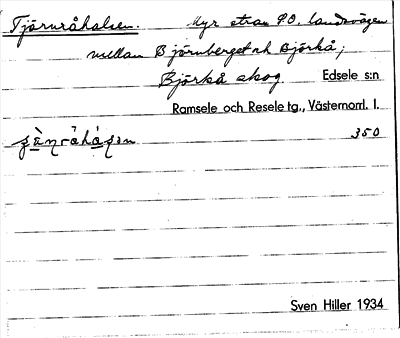 Tjärnråhalsen. Myr strax PO. landsvägen
mellan Björnberget och Björkå;
Björkå skog Edsele s:n
Ramsele och Resele tg., Västernorrl. l.
350
Sven Hiller 1934